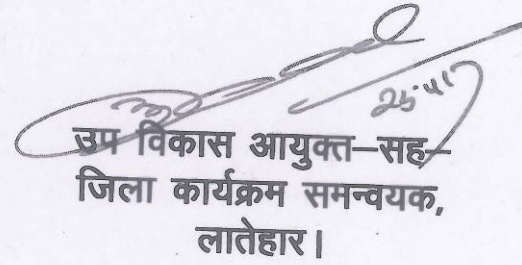 उप विकास आयुक्त–सह–
जिला कार्यक्रम समन्वयक,
लातेहार।